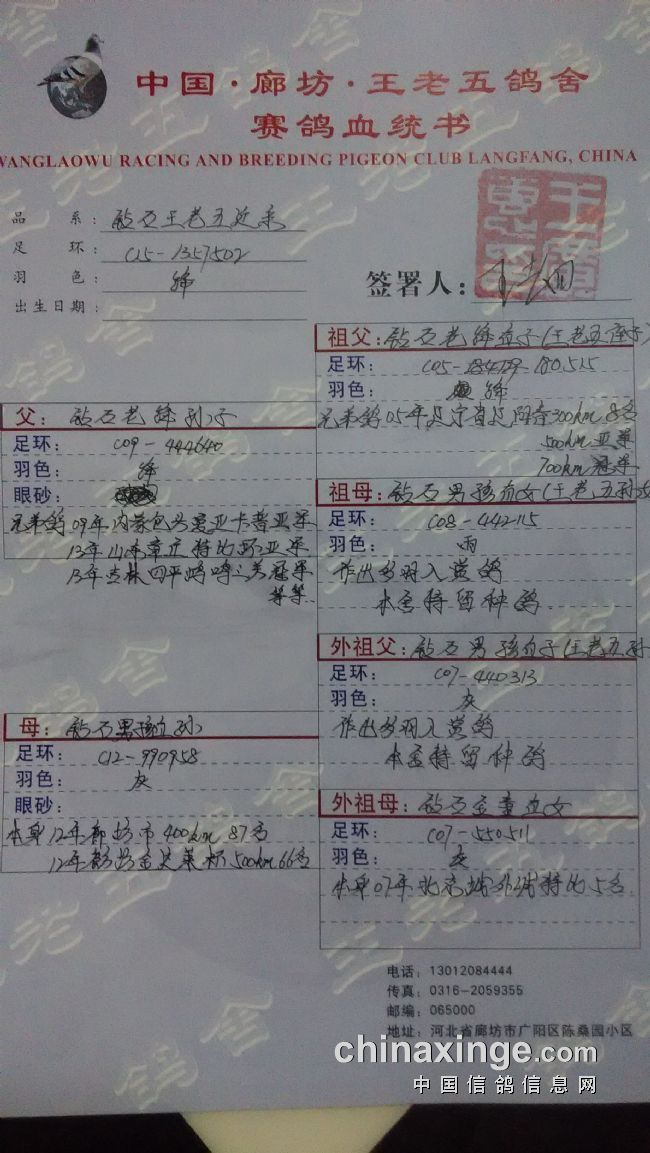 中国·廊坊·王老五鸽舍
赛鸽血统书
WANGLAOWU RACING AND BREEDING PIGEON CLUB LANGFANG, CHINA
品 系: 钻石王老五近亲
足 环: C15-1357502
羽 色: 绛
出生日期:
签署人:
祖父: 钻石老绛直子(王老五
足环: C05- 180515
羽色: 绛
兄弟鸽05年辽宁省辽阳 300km 8名
500km亚军
700km冠军
父: 钻石老绛孙子
足环: C09-444640
羽色: 绛
眼砂:
兄弟鸽09年内蒙包头爱亚卡普亚军
13年山东章丘特比环亚军
13年吉林四平鸣鸣 冠军
等等
祖母: 钻石男孩直女(王老五孙女
足环: C08-442115
羽色: 雨
作出多羽入赏鸽
本舍特留种鸽
外祖父: 钻石男孩直子(王老五孙
足环: C07-440313
羽色: 灰
作出多羽入赏鸽
本舍特留种鸽
母: 钻石男孩直孙
足环: C12-990958
羽色: 灰
眼砂:
本身12年廊坊市400km 87名
12年廊坊 杯500km 66名
外祖母: 钻石金童直女
足环: C07-550511
羽色: 灰
本身07年北京 特比5名
电话: 13012084444
传真: 0316-2059355
邮编: 065000
地址: 河北省廊坊市广阳区陈桑园小区
chinaxinge.com
中国信鸽信息网